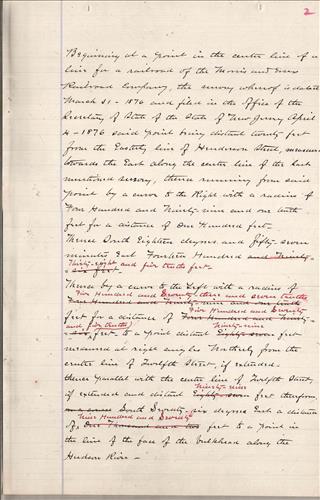 2
Beginning at a point in the center line of a
line for a railroad of the Morris and Essex
Railroad Company, the survey whereof is dated
March 31 - 1876 and filed in the office of the
Secretary of State of the State of New Jersey April
4 - 1876 said point being distant twenty feet
from the Easterly line of Henderson Street, measured
towards the East along the center line of the last
mentioned survey, thence running from said
point by a curve to the Right with a radius of
Four Hundred and Ninety-nine and one tenth
feet for a distance of One Hundred feet -
Thence South Eighteen degrees and fifty-seven
minutes East Fourteen Hundred and Ninety-
Thirty-eight and five tenths feet -
six feet -
Thence by a curve to the Left with a radius of
Five Hundred and Seventy three and seven tenths
One Hundred and Ninety-nine and one tenth
Five Hundred and Seventy
feet for a distance of Four Hundred and Ninety-
and five tenths Ninety-nine
six feet to a point distant Eighty-seven feet
measured at right angles Northerly from the
center line of Twelfth Street, if extended -
thence parallel with the center line of Twelfth Street,
Ninety-nine
if extended and distant Eighty-seven feet therefrom,
South Seventy-six degrees East a distance
Nine Hundred and Seventy
of One Thousand and two feet to a point in
the line of the face of the bulkhead along the
Hudson River -